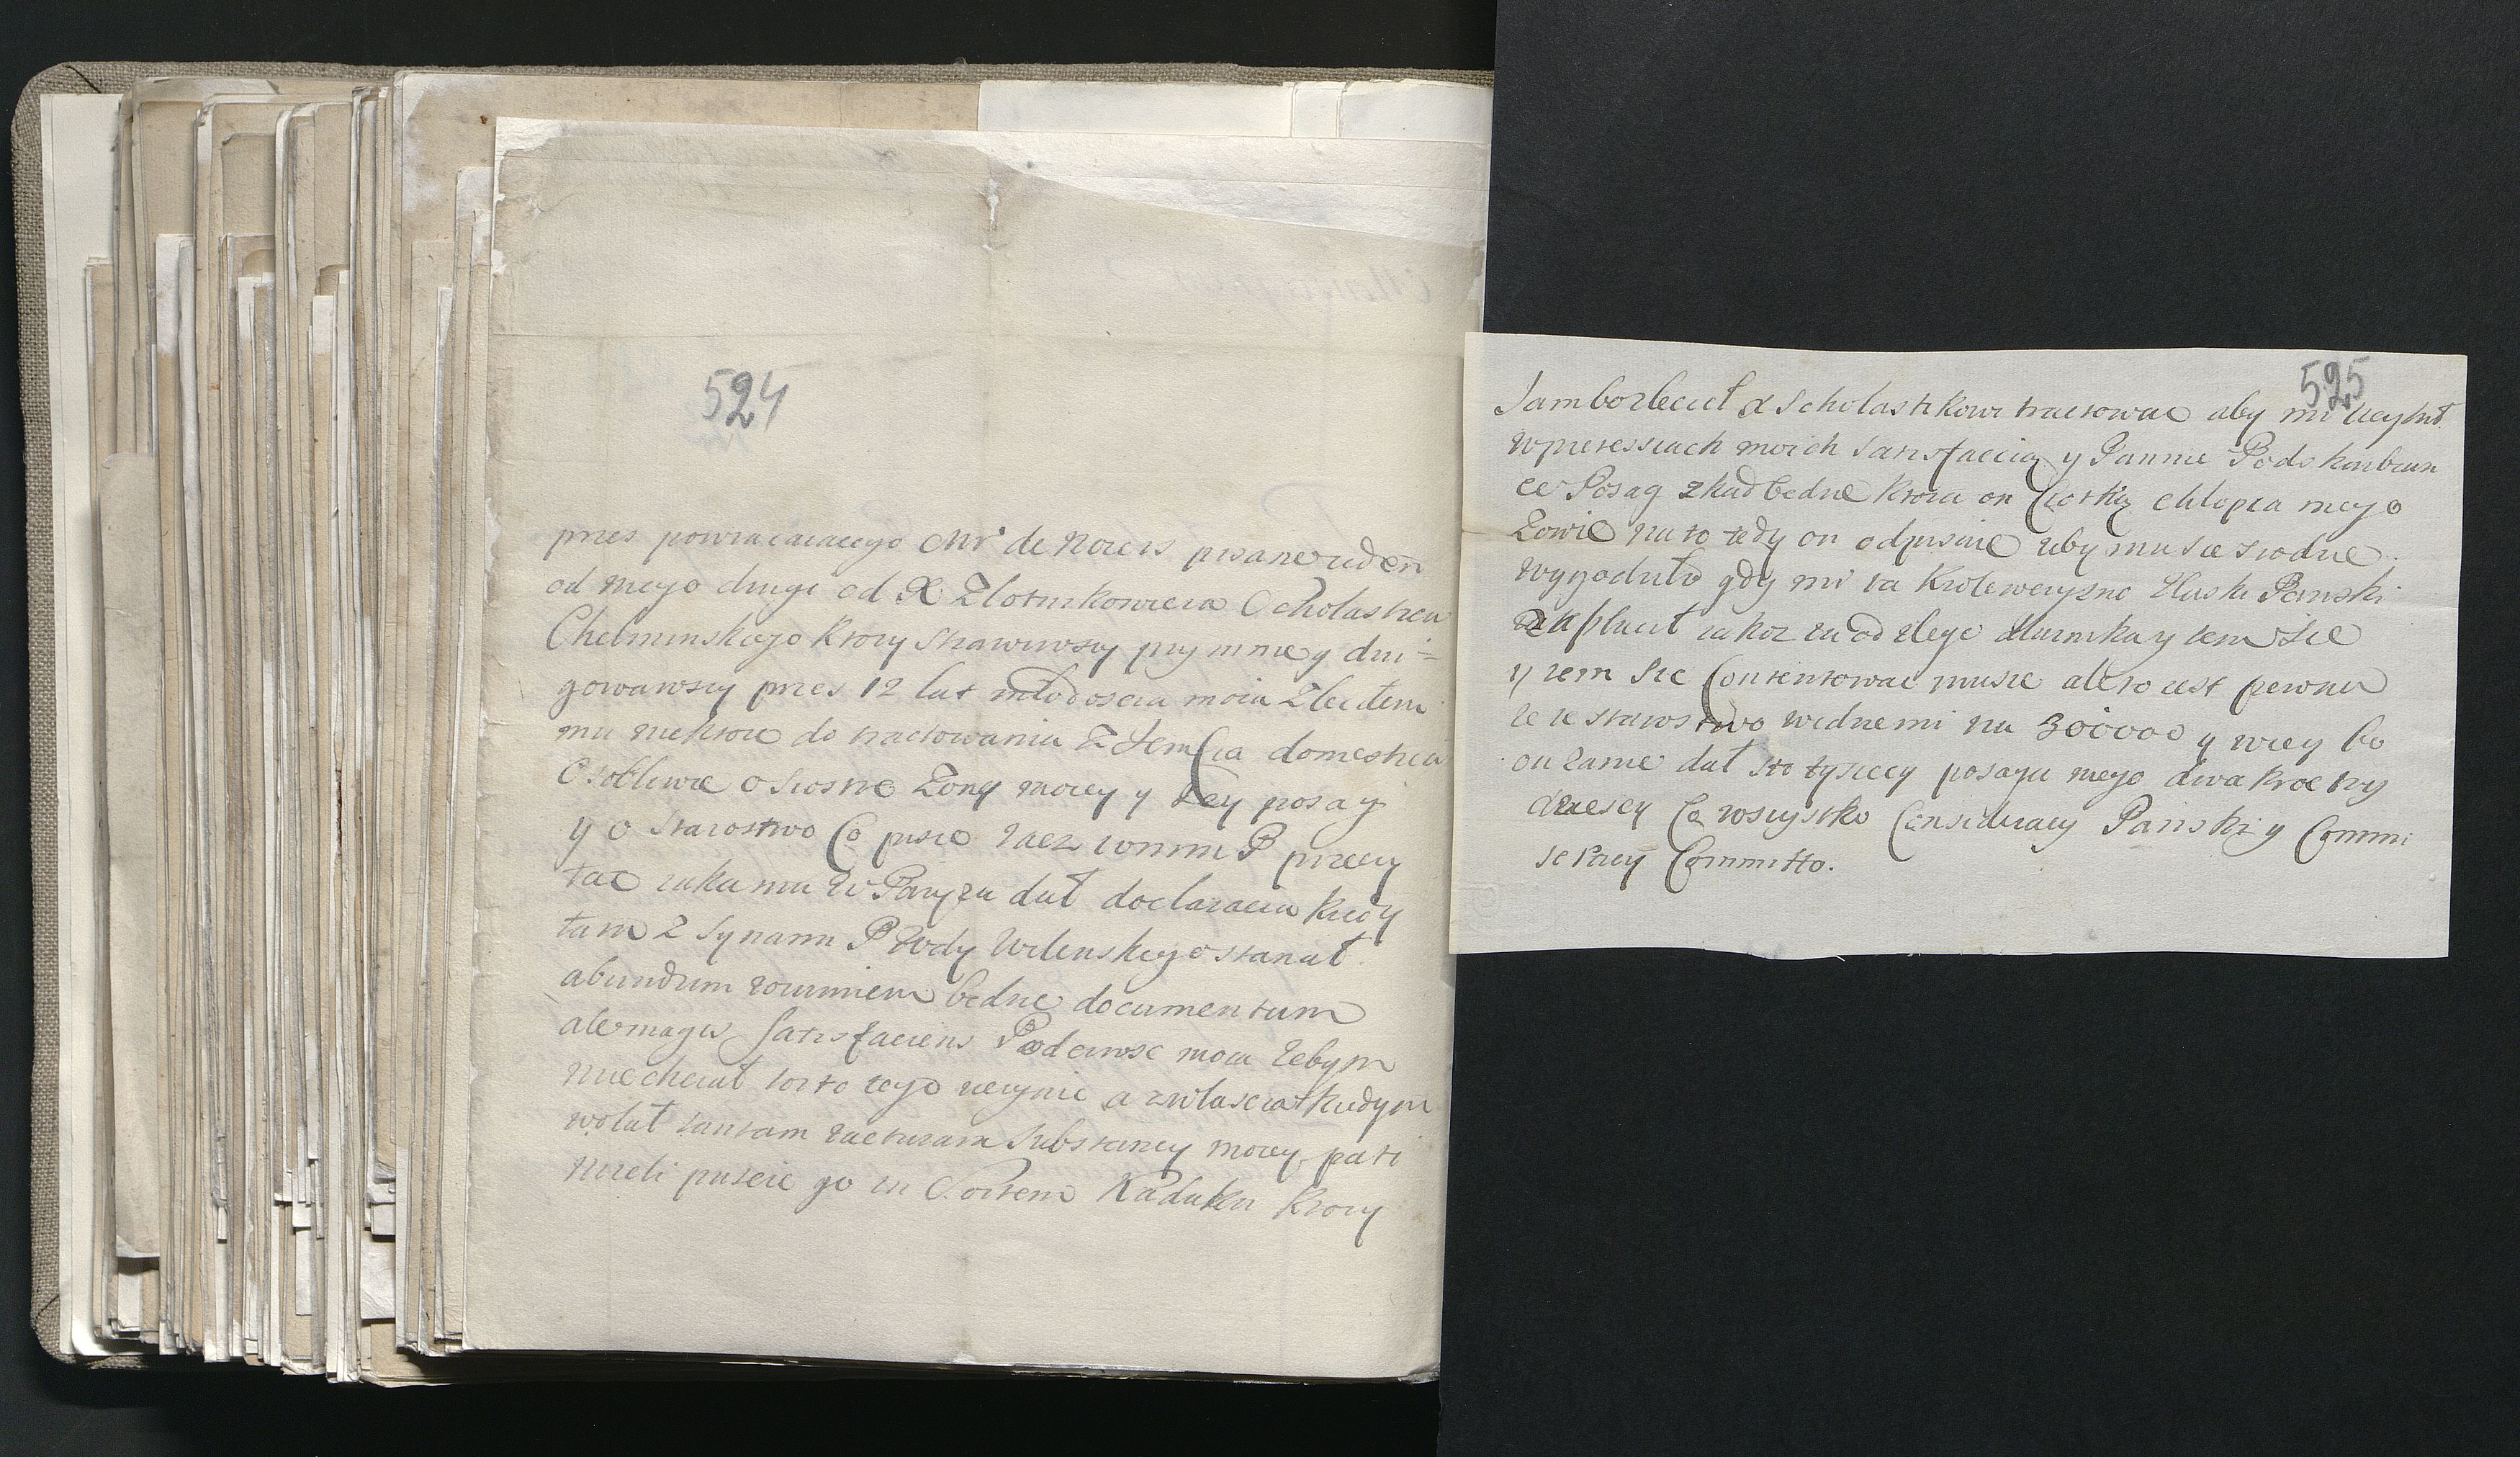 524
przes powracaiacego Mr de Noieis pisane ieden
od mego drugi od X Zlotnikowica Scholastica
Chelminskiego ktory strawiwszy przy mnie y dni=
gowawszy przes 12 lat młodoscia moia Zlecilem
mu niektore do tractowania Z Jem Cia domestica
Osobliwie o siostre Zony moiey y Jey posag
y o Starostwo Co pisze racz WMM P przeczy
tac iaka mu W Paryzu dał declaracia kiedy
tam z synami P Wdy Wilenskiego stanał
abundum rozumiem bedzie documentum
ale magis satisfaciens Poderwosc moia zebym
nie chciał tego uczynic a zwłascza kiedym
wolał tantam iacturam Substancy moiey pati
nizeli puscic go in Sortem Kaduka ktory
525
Jam bo zlecił X Scholastikowi tractowac aby mi uczynił
w pretessiach moich satisfaccią y Pannie Podskarbian
ce Posag zkad bedzie ktora on Ciotką chłopca mego
Zowie na to tedy on odpisuie
wygodziło gdy mi ta Krolewczyzno Łaski Panski
zapłacił iakoz ia od złego dłuznika y tem sie
y tem sie Contentowac musze ale to iest pewna
ze te starostwo widzie mi na 300000 y wiecy bo
on same dał sto tysiecy posagu mego dwa kroc trzy
dziescy Co wszystko Consideracy Panski y Commi
seracy Committo.